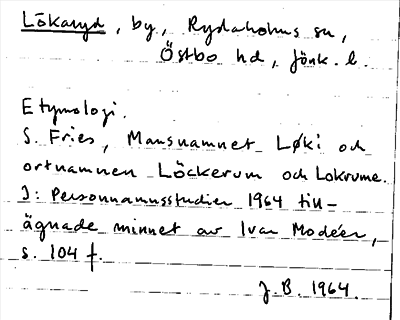 Lökaryd, by, Rydaholms sn,
Östbo hd, Jönk. l.
Etymologi.
S. Fries, Mansnamnet Løki och
ortnamnen Löckerum och Lokrume.
I: Personnamnsstudier 1964 till-
ägnade minnet av Ivar Modéer,
s. 104 f.
J.B. 1964.